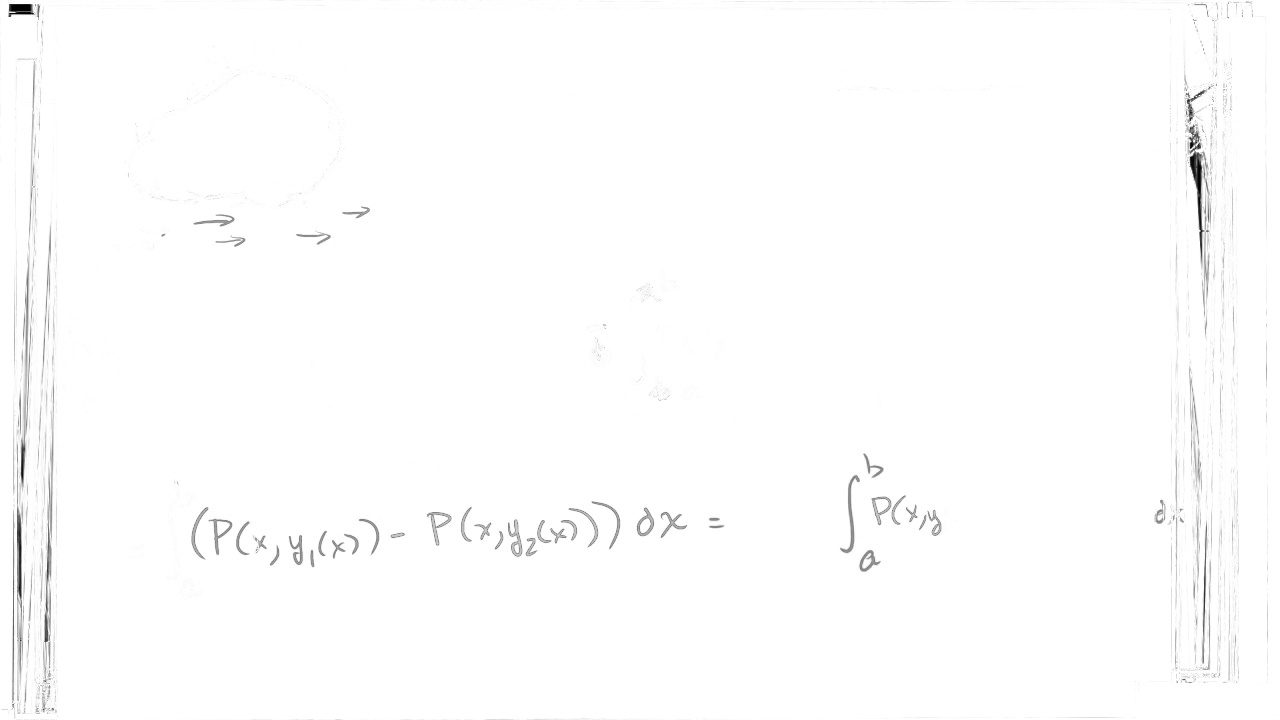 (P(x, y₁(x)) - P(x, y₂(x))) dx = ∫ₐᵇ P(x, y dx